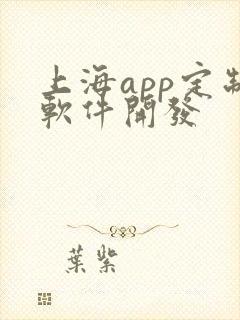 上海app定制
軟件開發
葉紫